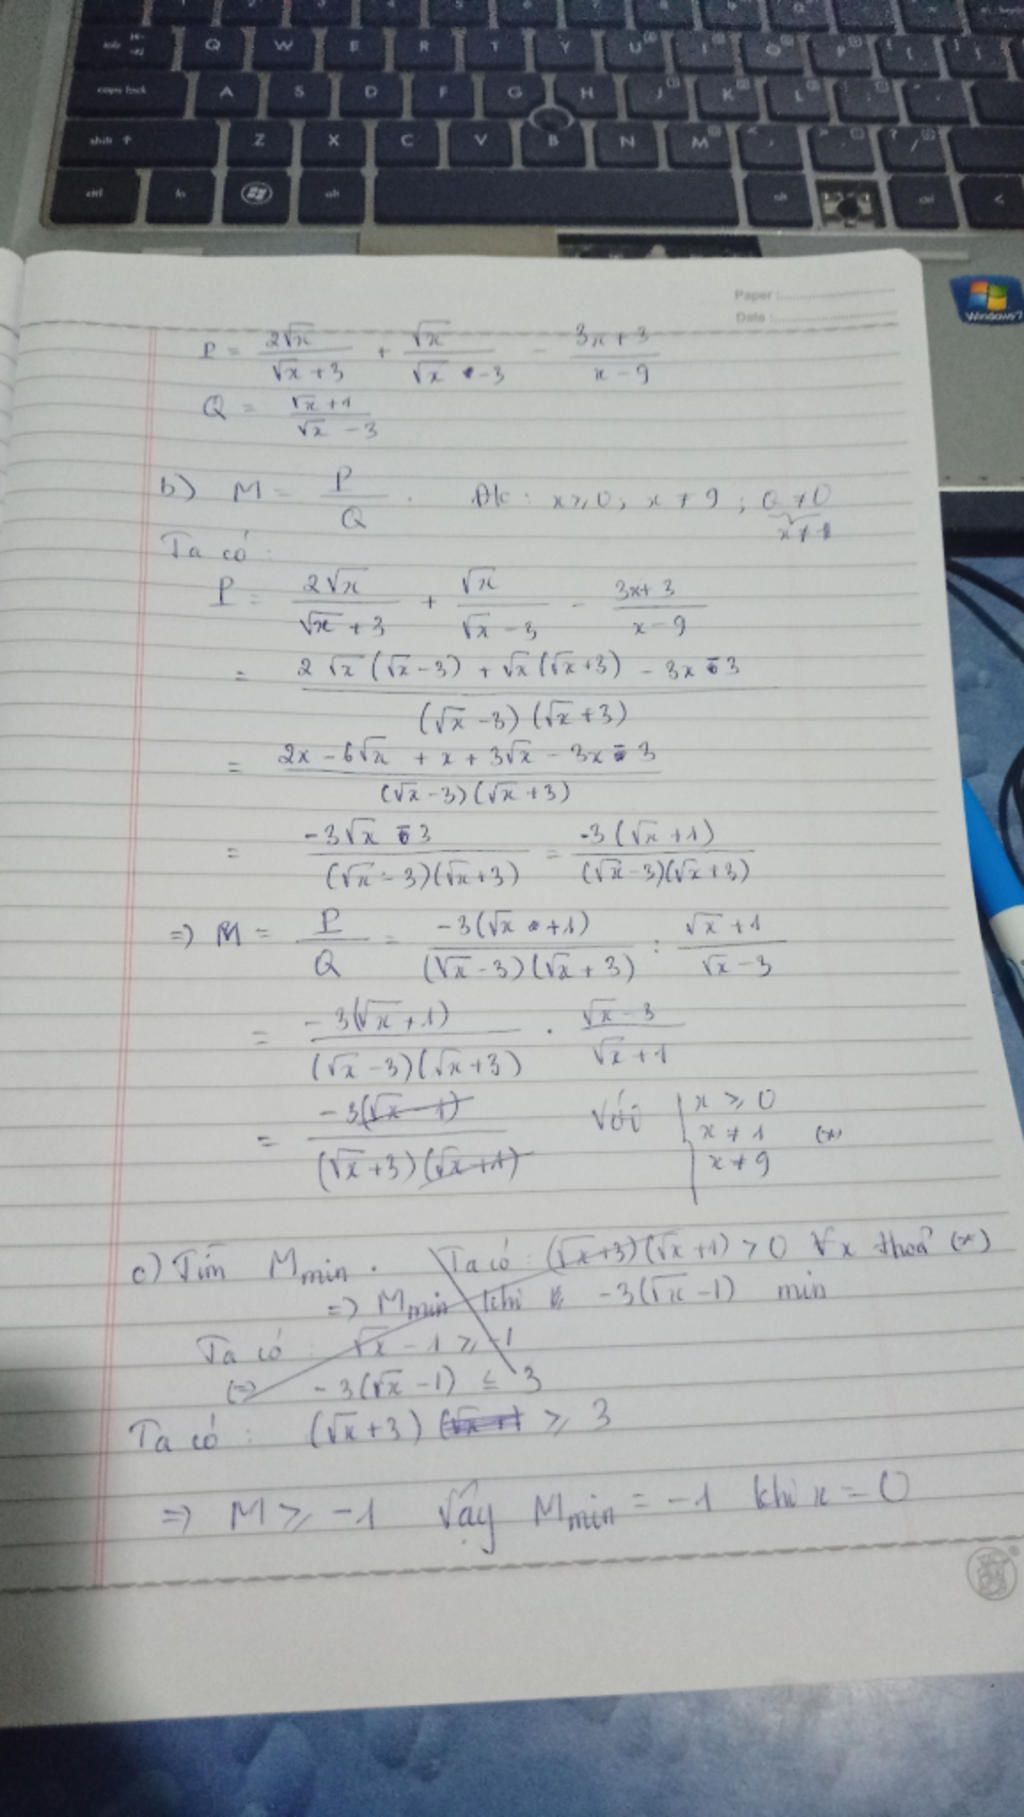 Q W E R T Y U I O P
caps lock A S D F G H J K L
shift Z X C V B N M
ctrl fn alt alt ctrl
Windows 7
Paper :
Date :
P = 2√x/(√x + 3) + √x/(√x - 3) - (3x + 3)/(x - 9)
Q = (√x + 1)/(√x - 3)
b) M = P/Q . Đk : x ≥ 0 ; x ≠ 9 ; Q ≠ 0
x ≠ 1
Ta có :
P = 2√x/(√x + 3) + √x/(√x - 3) - (3x + 3)/(x - 9)
= (2√x(√x - 3) + √x(√x + 3) - 3x - 3)/((√x - 3)(√x + 3))
= (2x - 6√x + x + 3√x - 3x - 3)/((√x - 3)(√x + 3))
= (-3√x - 3)/((√x - 3)(√x + 3)) = -3(√x + 1)/((√x - 3)(√x + 3))
=> M = P/Q = -3(√x + 1)/((√x - 3)(√x + 3)) : (√x + 1)/(√x - 3)
= -3(√x + 1)/((√x - 3)(√x + 3)) . (√x - 3)/(√x + 1)
= -3(√x - 1)/((√x + 3)(√x + 1)) Với { x ≥ 0
x ≠ 1 (*)
x ≠ 9
c) Tìm Mmin . Ta có : (√x + 3)(√x + 1) > 0 ∀x thoả (*)
=> Mmin khi -3(√x - 1) min
Ta có : √x - 1 ≥ -1
(=) -3(√x - 1) ≤ 3
Ta có : (√x + 3) ≥ 3
=> M ≥ -1 Vậy Mmin = -1 khi x = 0